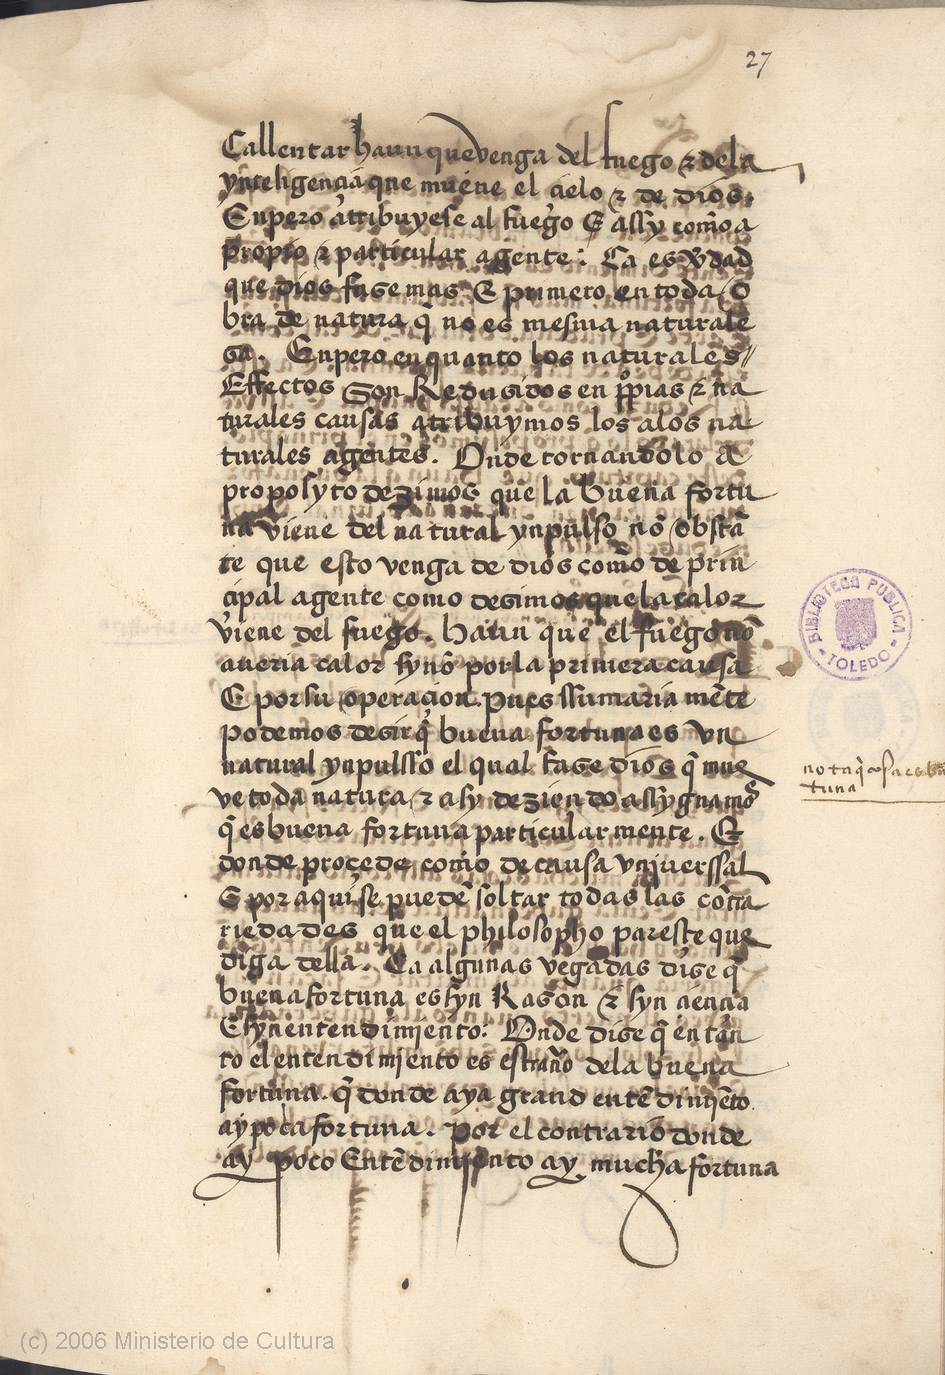 27
Callentar haun que venga del fuego & dela
ynteligencia que mueve el cielo & de dios.
Enpero atribuyese al fuego E assy como a
propio & particular agente: Ca es v̄dad
que dios fase mas E primero en toda o
bra de natura q̄ no es mesma naturale
sa. Enpero en quanto los naturales//
Effectos son Redusidos en p̄pias & na
turales causas atribuymos los alos na
turales agentes. Onde tornandolo a
proposyto dezimos que la buena fortu
na viene del natural ynpulso no obstā
te que esto venga de dios como de prin
cipal agente como desimos que la calor
viene del fuego. haun que el fuego nō
averia calor syno por la primera causa
E por su operacion. pues ssumaria mēte
podemos desir q̄ buena fortuna es vn
natural ynpulsso el qual fase dios q̄ mue
ve toda natura & asy deziendo assygnamos
q̄ es buena fortuna particular mente. E
donde proçede como de causa vnjuerssal
E por aqui se puedē soltar todas las cōtra
riedades que el philosopho pareste que
diga della. Ca algunas vegadas dise q̄
buena fortuna es syn Rason & syn ciencia
E syn entendimjento: Onde dise q̄ en tan
to el entendimjento es estraño dela buena
fortuna. q̄ donde aya grand entēdimjēto
ay poca fortuna. Por el contrario donde
ay poco Entēdimjento ay mucha fortuna
BIBLIOTECA PUBLICA
- TOLEDO -
not q̄ cosa es bn̄
tuna
(c) 2006 Ministerio de Cultura